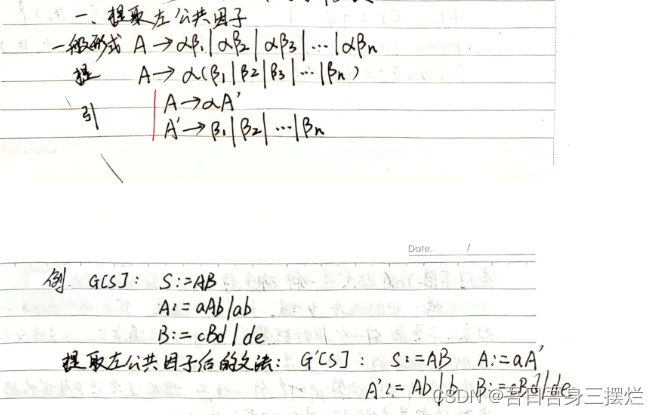 一、提取左公共因子
一般形式 A→αβ₁|αβ₂|αβ₃|…|αβn
提 A→α(β₁|β₂|β₃|…|βn)
引 A→αA'
A'→β₁|β₂|…|βn
Date. /
例. G[S]: S:=AB
A:=aAb|ab
B:=cBd|de
提取左公共因子后的文法: G'[S]: S:=AB A:=aA'
A':=Ab|b B:=cBd|de
CSDN @吾日吾身三摆烂